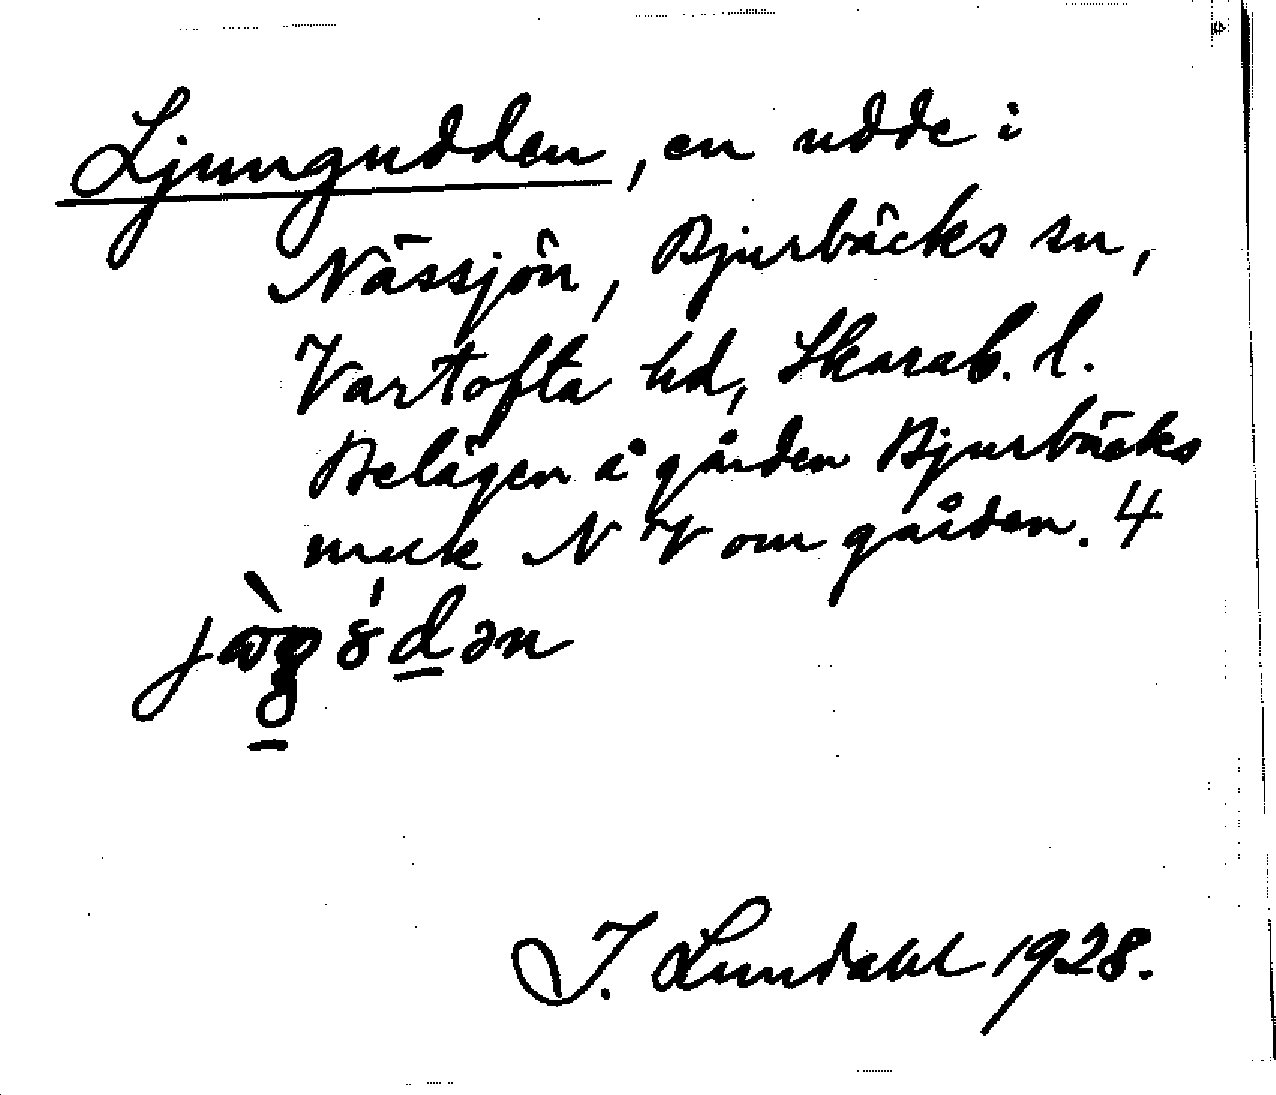 Ljungudden, en udde i
Nässjön, Bjurbäcks sn,
Vartofta hd, Skarab. l.
Belägen å gården Bjurbäcks
mark N V om gården. 4
I. Lundahl 1928.